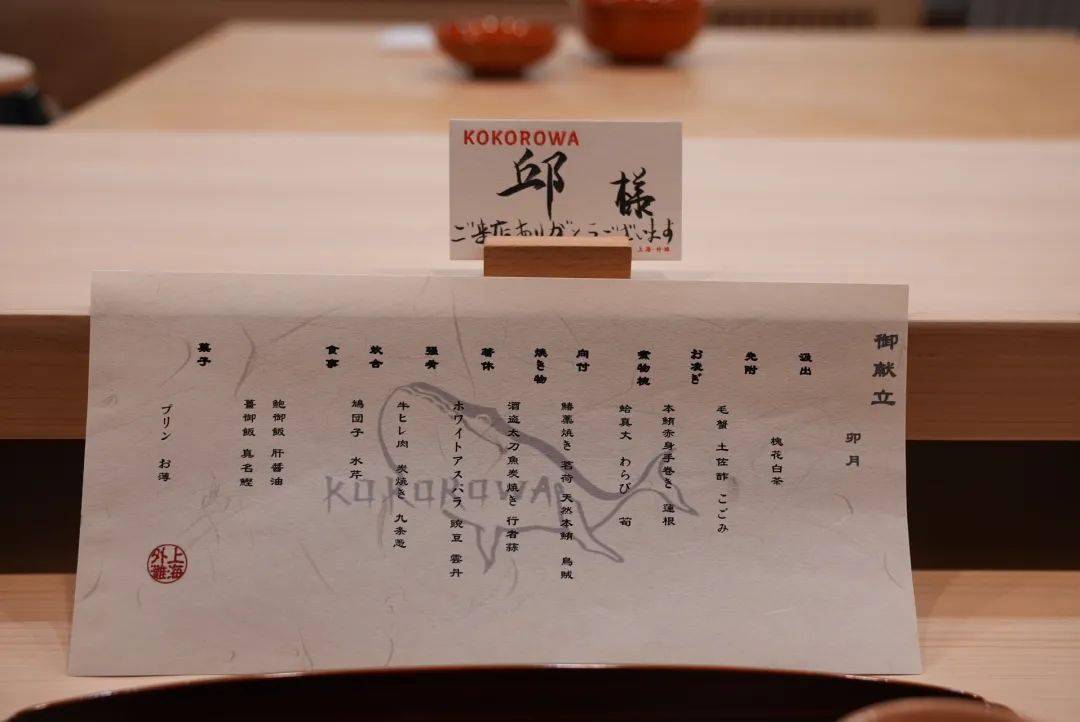 KOKOROWA
邱 様
ご来店ありがとうございます
上海・外灘
御献立
卯月
汲出
槐花白茶
先附
毛蟹 土佐酢 こごみ
お凌ぎ
本鮪赤身手巻き 蓮根
煮物椀
蛤真丈 わらび 筍
向付
鰆藁焼き 茗荷 天然本鮪 烏賊
焼き物
酒盗太刀魚炭焼き 行者蒜
箸休
ホワイトアスパラ 豌豆 雲丹
強肴
牛ヒレ肉 炭焼き 九条葱
炊合
鳩団子 水芹
食事
鮑御飯 肝醤油
薑御飯 真名鰹
菓子
プリン お薄
KOKOROWA
上海
外灘